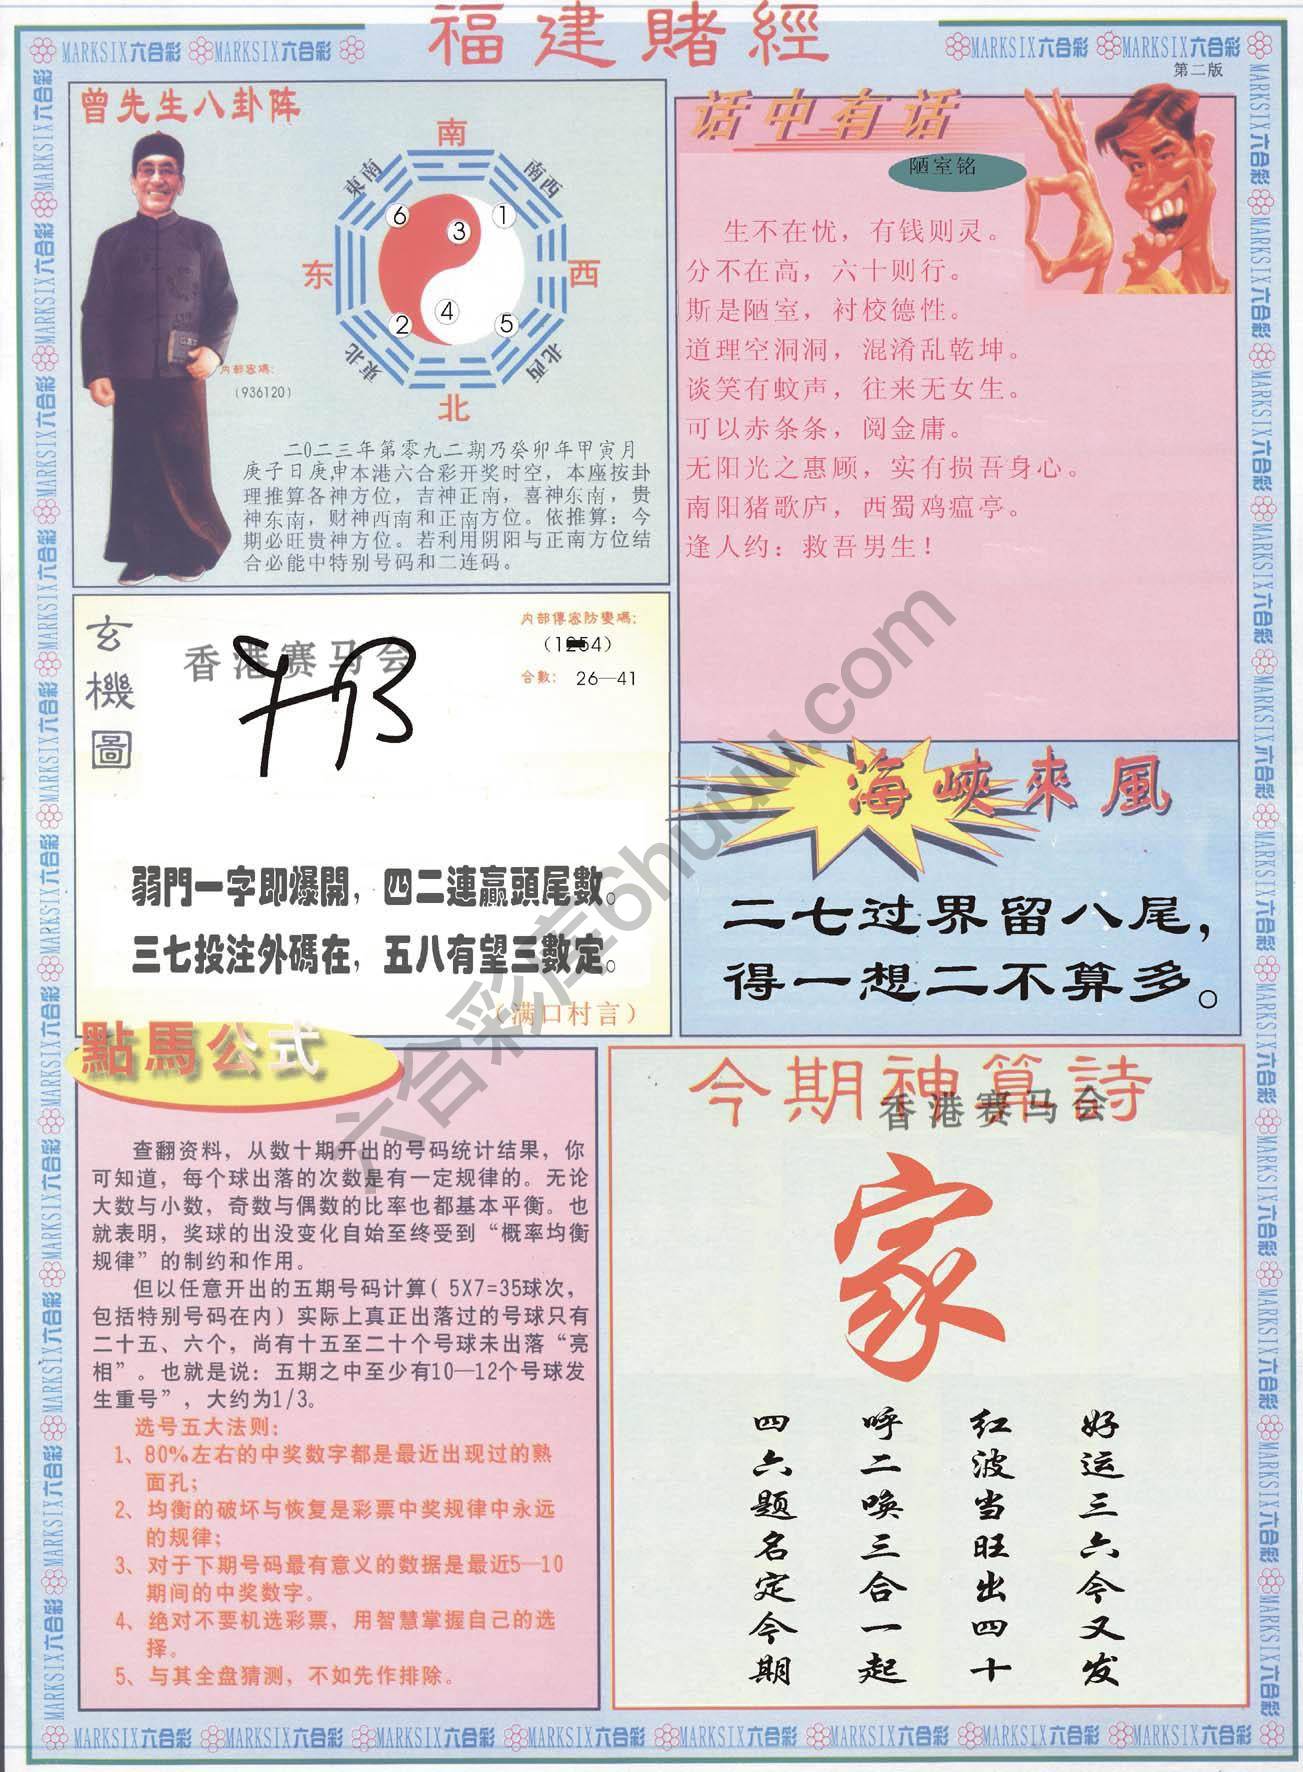 福建賭經
MARKSIX六合彩 MARKSIX六合彩
MARKSIX六合彩 MARKSIX六合彩
第二版
曾先生八卦阵
南
東南
南西
6
1
3
东
西
4
2
5
東北
北西
北
内部密碼:
(936120)
二0二三年第零九二期乃癸卯年甲寅月
庚子日庚申本港六合彩开奖时空，本座按卦
理推算各神方位，吉神正南，喜神东南，贵
神东南，财神西南和正南方位。依推算：今
期必旺贵神方位。若利用阴阳与正南方位结
合必能中特别号码和二连码。
话中有话
陋室铭
生不在忧，有钱则灵。
分不在高，六十则行。
斯是陋室，衬校德性。
道理空洞洞，混淆乱乾坤。
谈笑有蚊声，往来无女生。
可以赤条条，阅金庸。
无阳光之惠顾，实有损吾身心。
南阳猪歌庐，西蜀鸡瘟亭。
逢人约：救吾男生！
玄機圖
香港赛马会
内部傳密防變碼:
合數： 26—41
弱門一字即爆開，四二連贏頭尾數。
三七投注外碼在，五八有望三數定。
（满口村言）
海峽來風
二七过界留八尾，
得一想二不算多。
點馬公式
查翻资料，从数十期开出的号码统计结果，你
可知道，每个球出落的次数是有一定规律的。无论
大数与小数，奇数与偶数的比率也都基本平衡。也
就表明，奖球的出没变化自始至终受到“概率均衡
规律”的制约和作用。
但以任意开出的五期号码计算( 5X7=35球次，
包括特别号码在内) 实际上真正出落过的号球只有
二十五、六个，尚有十五至二十个号球未出落“亮
相”。也就是说：五期之中至少有10—12个号球发
生重号”，大约为1/3。
选号五大法则：
1、80%左右的中奖数字都是最近出现过的熟
面孔；
2、均衡的破坏与恢复是彩票中奖规律中永远
的规律；
3、对于下期号码最有意义的数据是最近5—10
期间的中奖数字。
4、绝对不要机选彩票，用智慧掌握自己的选
择。
5、与其全盘猜测，不如先作排除。
今期神算詩
香港赛马会
家
好运三六今又发
红波当旺出四十
呼二唤三合一起
四六题名定今期
六合彩库6huuu.com
MARKSIX六合彩 MARKSIX六合彩 MARKSIX六合彩 MARKSIX六合彩 MARKSIX六合彩 MARKSIX六合彩 MARKSIX六合彩 MARKSIX六合彩